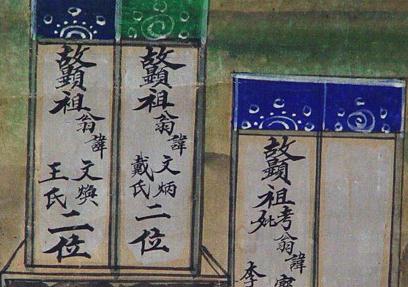 故顯祖考翁諱
妣李
故顯祖翁諱文炳
戴氏二位
故顯祖翁諱文煥
王氏二位